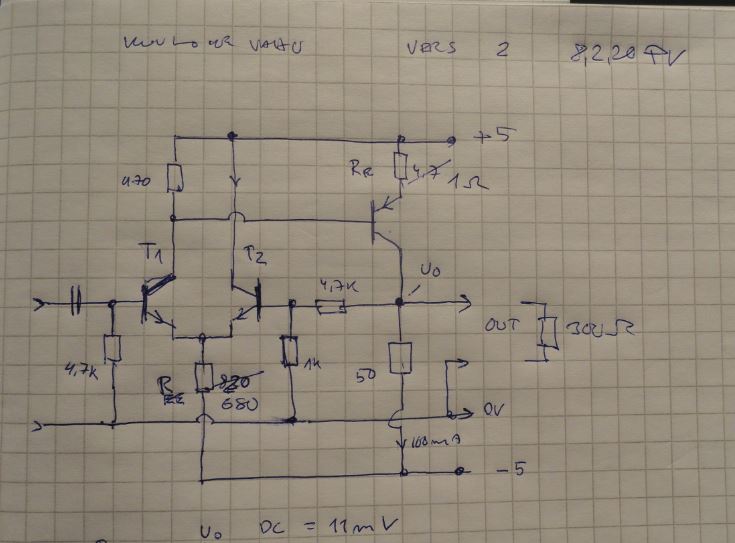 VERS 2 8,2,20
+5
470
RE 4,7 1Ω
T1 T2
U0
4,7K
OUT 300Ω
4,7K
1K
50
RE 820
680
0V
100mA
-5
U0 DC = 11mV